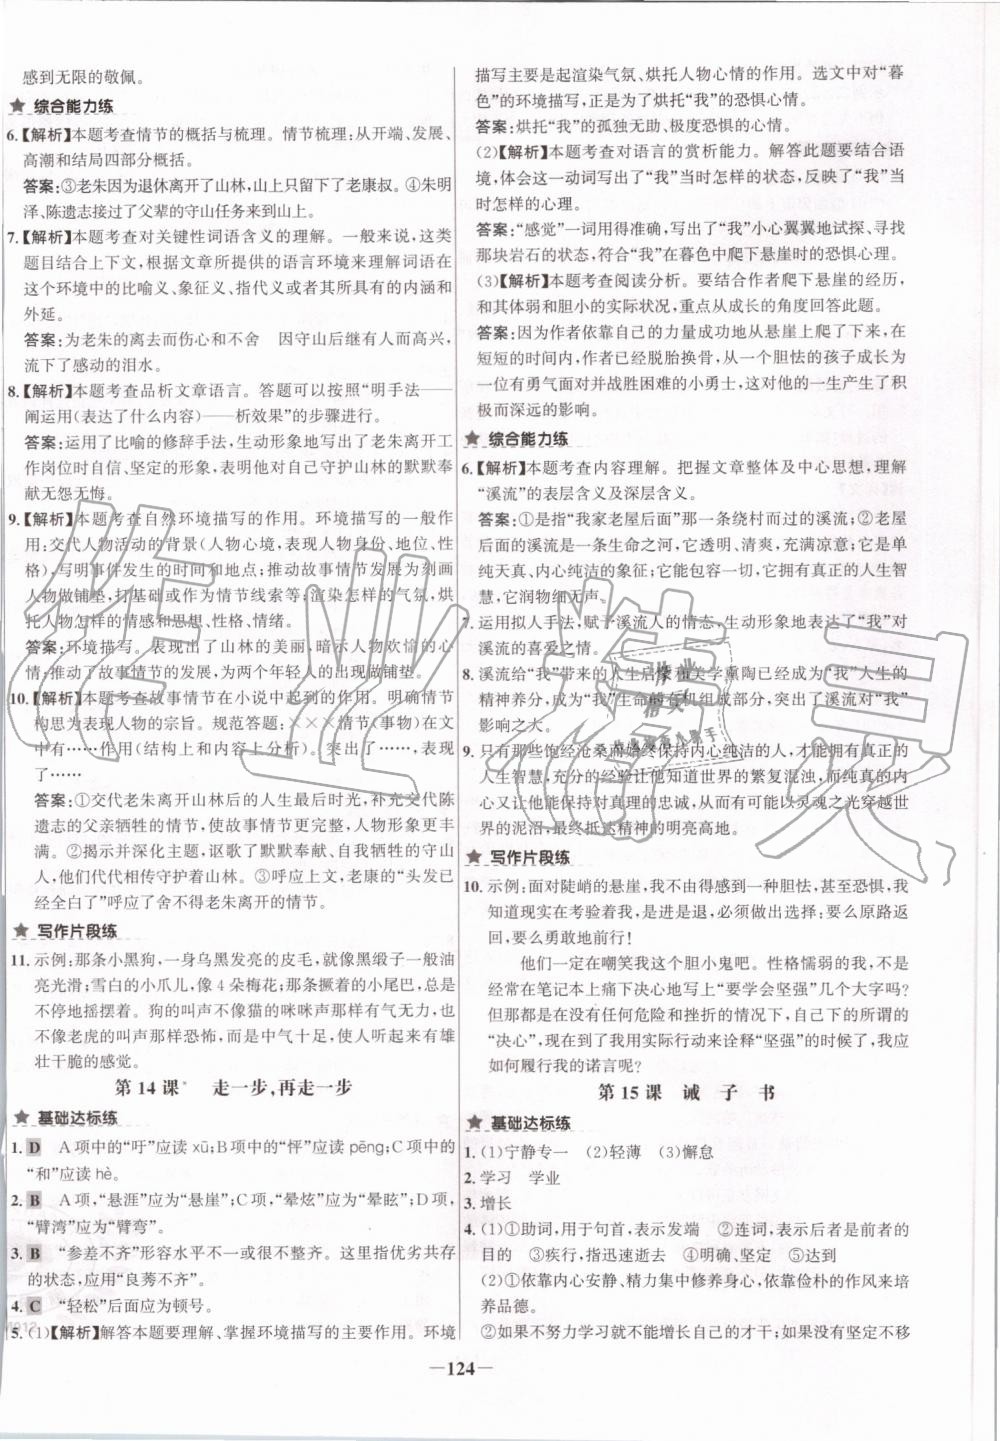 感到无限的敬佩。
★ 综合能力练
6.【解析】本题考查情节的概括与梳理。情节梳理:从开端、发展、
高潮和结局四部分概括。
答案:③老朱因为退休离开了山林,山上只留下了老康叔。④朱明
泽、陈遗志接过了父辈的守山任务来到山上。
7.【解析】本题考查对关键性词语含义的理解。一般来说,这类
题目结合上下文,根据文章所提供的语言环境来理解词语在
这个环境中的比喻义、象征义、指代义或者其所具有的内涵和
外延。
答案:为老朱的离去而伤心和不舍　因守山后继有人而高兴,
流下了感动的泪水。
8.【解析】本题考查品析文章语言。答题可以按照“明手法——
阐运用(表达了什么内容)——析效果”的步骤进行。
答案:运用了比喻的修辞手法,生动形象地写出了老朱离开工
作岗位时自信、坚定的形象,表现他对自己守护山林的默默奉
献无怨无悔。
9.【解析】本题考查自然环境描写的作用。环境描写的一般作
用:交代人物活动的背景(人物心境,表现人物身份、地位、性
格),写明事件发生的时间和地点;推动故事情节发展为刻画
人物做铺垫,打基础或作为情节线索等;渲染怎样的气氛,烘
托人物怎样的情感和思想、性格、情绪。
答案:环境描写。表现出了山林的美丽,暗示人物欢愉的心
情,推动了故事情节的发展,为两个年轻人的出现做铺垫。
10.【解析】本题考查故事情节在小说中起到的作用。明确情节
构思为表现人物的宗旨。规范答题:×××情节(事物)在文
中有……作用(结构上和内容上分析)。突出了……表现
了……
答案:①交代老朱离开山林后的人生最后时光,补充交代陈
遗志的父亲牺牲的情节,使故事情节更完整,人物形象更丰
满。②揭示并深化主题,讴歌了默默奉献、自我牺牲的守山
人,他们代代相传守护着山林。③呼应上文,老康的“头发已
经全白了”呼应了舍不得老朱离开的情节。
★ 写作片段练
11. 示例:那条小黑狗,一身乌黑发亮的皮毛,就像黑缎子一般油
亮光滑;雪白的小爪儿,像4朵梅花;那条撅着的小尾巴,总是
不停地摇摆着。狗的叫声不像猫的咪咪声那样有气无力,也
不像老虎的叫声那样恐怖,而是中气十足,使人听起来有雄
壮干脆的感觉。
第14课*　走一步,再走一步
★ 基础达标练
1. D　A项中的“吁”应读xū;B项中的“怦”应读pēng;C项中
的“和”应读hè。
2. B　A项,“悬涯”应为“悬崖”;C项,“晕炫”应为“晕眩”;D项,
“臂湾”应为“臂弯”。
3. B　“参差不齐”形容水平不一或很不整齐。这里指优劣共存
的状态,应用“良莠不齐”。
4. C　“轻松”后面应为顿号。
5. (1)【解析】解答本题要理解、掌握环境描写的主要作用。环境
描写主要是起渲染气氛、烘托人物心情的作用。选文中对“暮
色”的环境描写,正是为了烘托“我”的恐惧心情。
答案:烘托“我”的孤独无助、极度恐惧的心情。
(2)【解析】本题考查对语言的赏析能力。解答此题要结合语
境,体会这一动词写出了“我”当时怎样的状态,反映了“我”当
时怎样的心理。
答案:“感觉”一词用得准确,写出了“我”小心翼翼地试探、寻找
那块岩石的状态,表现了“我”在暮色中爬下悬崖时的恐惧心理。
(3)【解析】本题考查阅读分析。要结合作者爬下悬崖的经历,
和其体弱和胆小的实际状况,重点从成长的角度回答此题。
答案:因为作者依靠自己的力量成功地从悬崖上爬了下来,在
短短的时间里,作者已经脱胎换骨,从一个胆怯的孩子成长为
一位有勇气面对并战胜困难的小勇士,这对他的一生产生了积
极而深远的影响。
★ 综合能力练
6.【解析】本题考查内容理解。把握文章整体及中心思想,理解
“溪流”的表层含义及深层含义。
答案:①是指“我家老屋后面”那一条绕村而过的溪流。②老屋
后面的溪流是一条生命之河,它透明、清爽,充满凉意;它是
单纯天真、内心纯洁的象征;它能包容一切,拥有真正的人生智
慧,它润物细无声。
7. 运用拟人手法,赋予溪流人的情态,生动形象地写出了“我”对
溪流的喜爱之情。
8. 溪流给“我”带来的人生启蒙和美学熏陶已经成为“我”人生的
精神养分,成为“我”生命的有机组成部分,突出了溪流对“我”
影响之大。
9. 只有那些饱经沧桑而始终保持内心纯洁的人,才能拥有真正的
人生智慧,充分的经验让他知道世界的繁复混浊,而纯真的内
心又让他能保持对真理的忠诚,从而有可能以灵魂之光穿越世
界的泥沼,最终抵达精神的明亮高地。
★ 写作片段练
10. 示例:面对陡峭的悬崖,我不由得感到一种胆怯,甚至恐惧,我
知道现实在考验着我:是进是退,必须做出选择;要么原路返
回,要么勇敢地前行!
他们一定在嘲笑我这个胆小鬼吧。性格懦弱的我,不是
经常在笔记本上痛下决心地写上“要学会坚强”几个大字吗?
但那都是在没有任何危险和挫折的情况下,自己下的所谓的
“决心”,现在到了我用实际行动来诠释“坚强”的时候,我应
如何履行我的诺言呢?
第15课　诫　子　书
★ 基础达标练
1. (1)宁静专一　(2)轻薄　(3)懈怠
2. 学习　学业
3. 增长
4. (1)①助词,用于句首,表示发端　②连词,表示前后句的承接
关系　③疾行,指迅速逝去　④明确、坚定　⑤达到
(2)①依靠内心安静、精力集中修养身心,依靠俭朴的作风来培
养品德。
②如果不努力学习就不能增长自己的才干;如果没有坚定不移
—124—